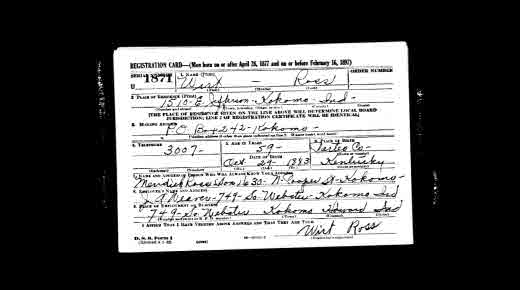 REGISTRATION CARD—(Men born on or after April 28, 1877 and on or before February 16, 1897)
SERIAL NUMBER 1. NAME (Print) ORDER NUMBER
1871 Wirt — Ross
U
2. PLACE OF RESIDENCE (Print)
1510-E Jefferson-Kokomo-Ind-
[THE PLACE OF RESIDENCE GIVEN ON THE LINE ABOVE WILL DETERMINE LOCAL BOARD
JURISDICTION; LINE 2 OF REGISTRATION CERTIFICATE WILL BE IDENTICAL]
3. MAILING ADDRESS
P.O. Box 242-Kokomo-
4. TELEPHONE 5. AGE IN YEARS 6. PLACE OF BIRTH
3007- 59- Co-
DATE OF BIRTH
Oct 1883 Kentucky
7. NAME AND ADDRESS OF PERSON WHO WILL ALWAYS KNOW YOUR ADDRESS
Ross Son 1630-N Cooper St-Kokomo-
8. EMPLOYER'S NAME AND ADDRESS
Weaver-749-So Webster-Kokomo Ind
9. PLACE OF EMPLOYMENT OR BUSINESS
749-So Webster Kokomo Howard Ind
I AFFIRM THAT I HAVE VERIFIED ABOVE ANSWERS AND THAT THEY ARE TRUE.
Wirt Ross
D. S. S. Form 1